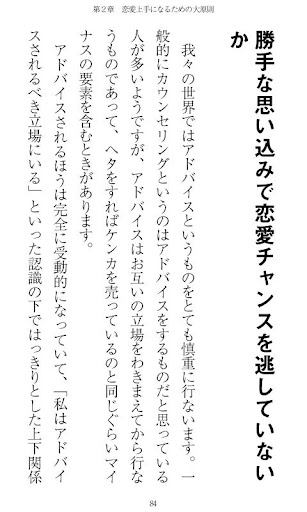 第2章 恋愛上手になるための大原則
勝手な思い込みで恋愛チャンスを逃していない
か
我々の世界ではアドバイスというものをとても慎重に行ないます。一
般的にカウンセリングというのはアドバイスをするものだと思っている
人が多いようですが、アドバイスはお互いの立場をわきまえてから行な
うものであって、ヘタをすればケンカを売っているのと同じぐらいマイ
ナスの要素を含むときがあります。
アドバイスされるほうは完全に受動的になっていて、「私はアドバイ
スされるべき立場にいる」といった認識の下ではっきりとした上下関係
84